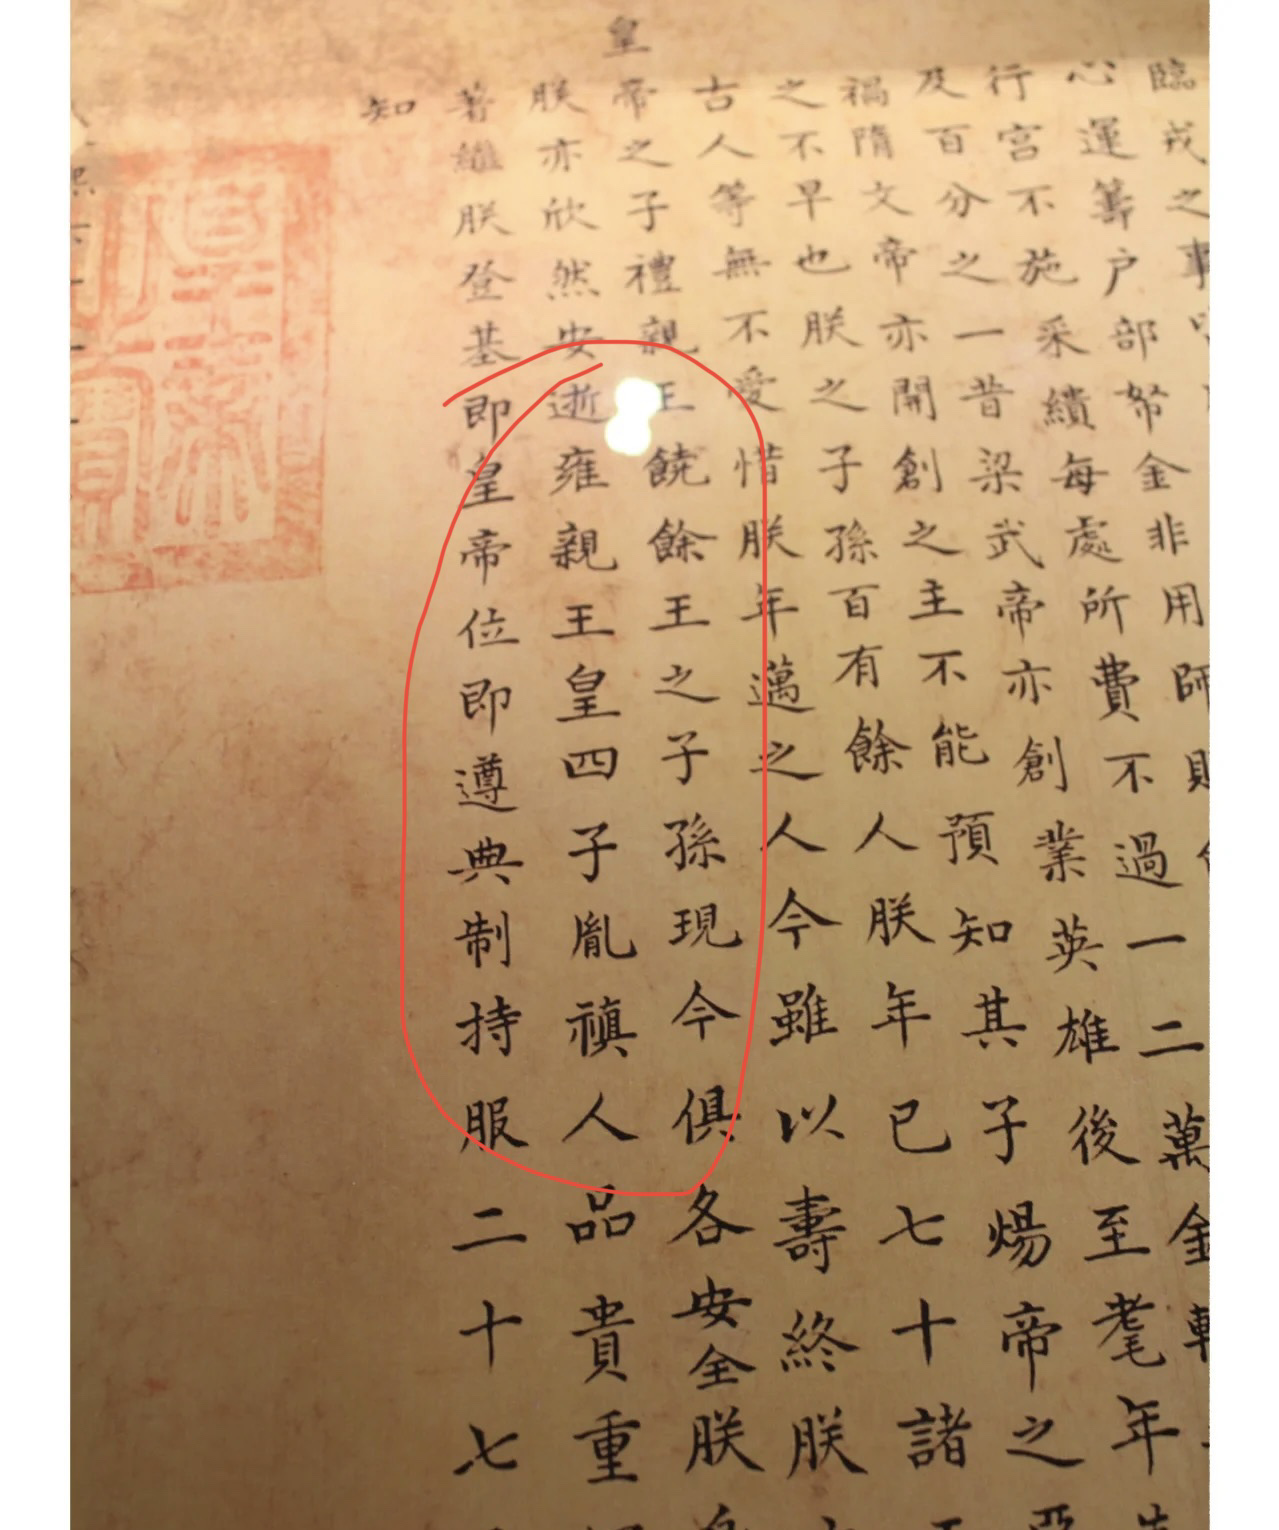 臨戎之事
心運籌户部帑金非用師
行宮不施采繢每處所費不過一二萬金
及百分之一昔梁武帝亦創業英雄後至耄年
禍隋文帝亦開創之主不能預知其子煬帝之
之不早也朕之子孫百有餘人朕年已七十諸
古人等無不愛惜朕年邁之人今雖以壽終朕
皇帝之子禮親王饒餘王之子孫現今俱各安全朕
朕亦欣然安逝雍親王皇四子胤禛人品貴重
著繼朕登基即皇帝位即遵典制持服二十七
知